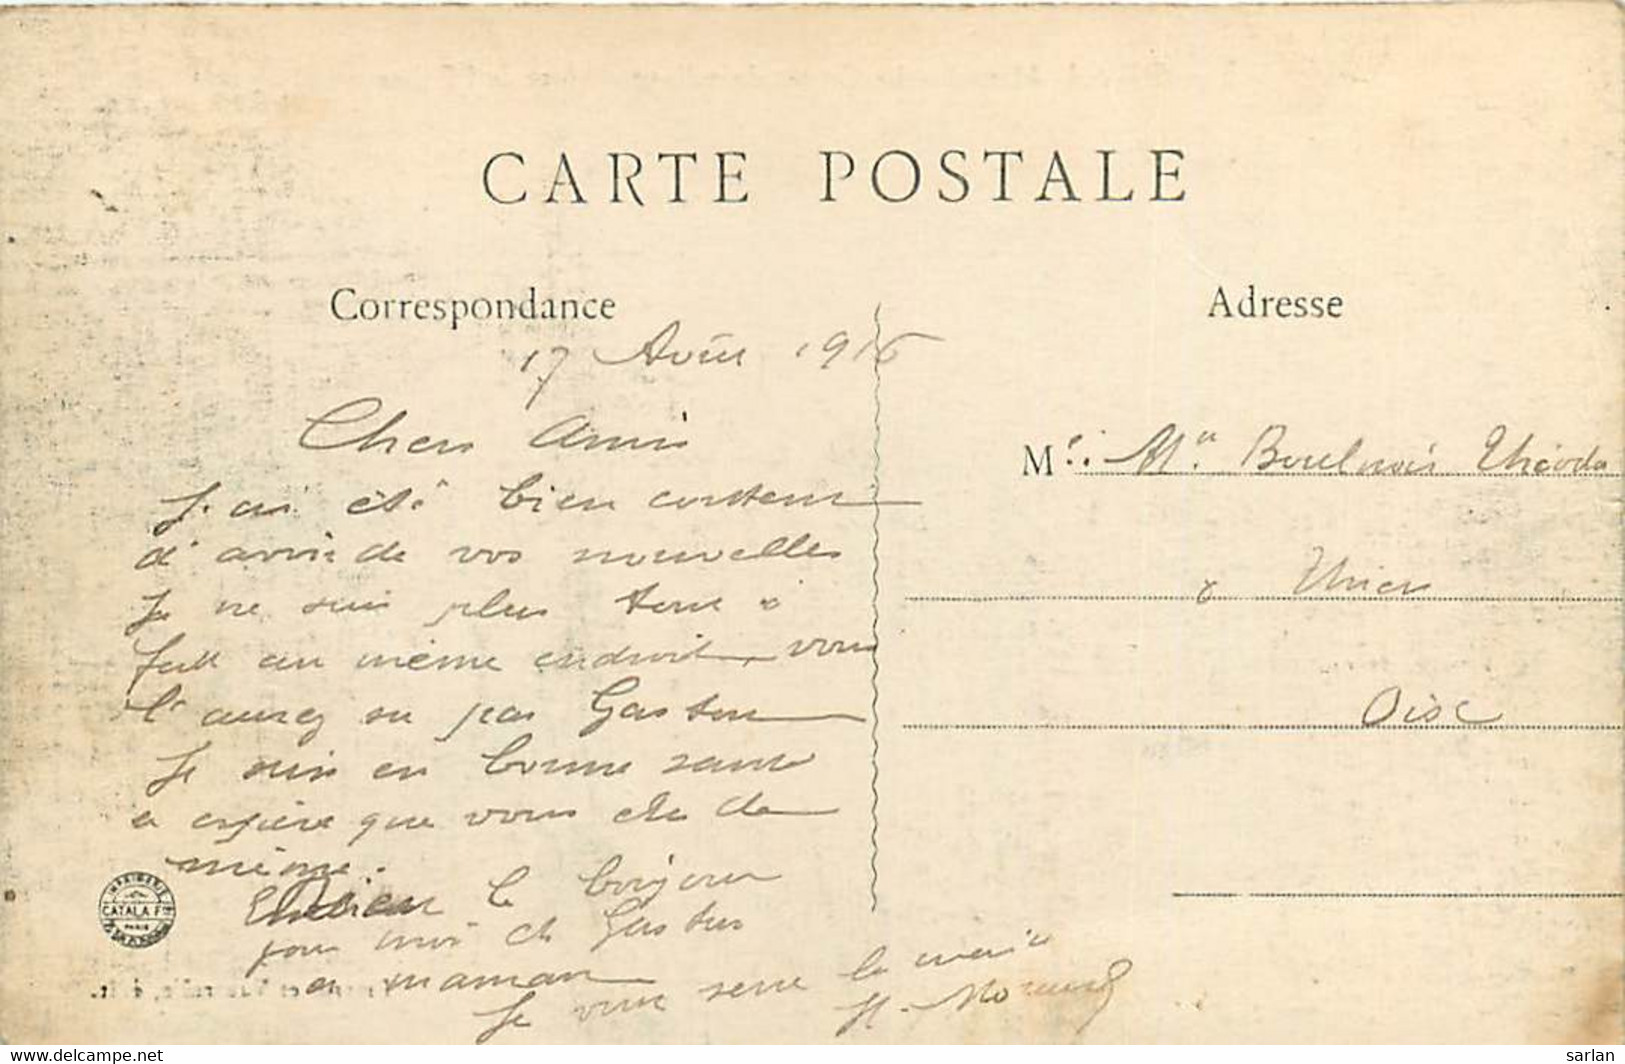 CARTE POSTALE
Correspondance
17 Août 1916
Chers Amis
J'ai été bien content
d'avoir de vos nouvelles
Je ne suis plus tout à
fait au même endroit, vous
l'aurez su par Gaston
Je suis en bonne santé
et espère que vous êtes de
même.
le bonjour
pour moi à Gaston
et maman
Je vous serre la main
H.
Adresse
M
Oise
IMPRIMERIE
CATALA Fres
PARIS
www.delcampe.net
sarlan